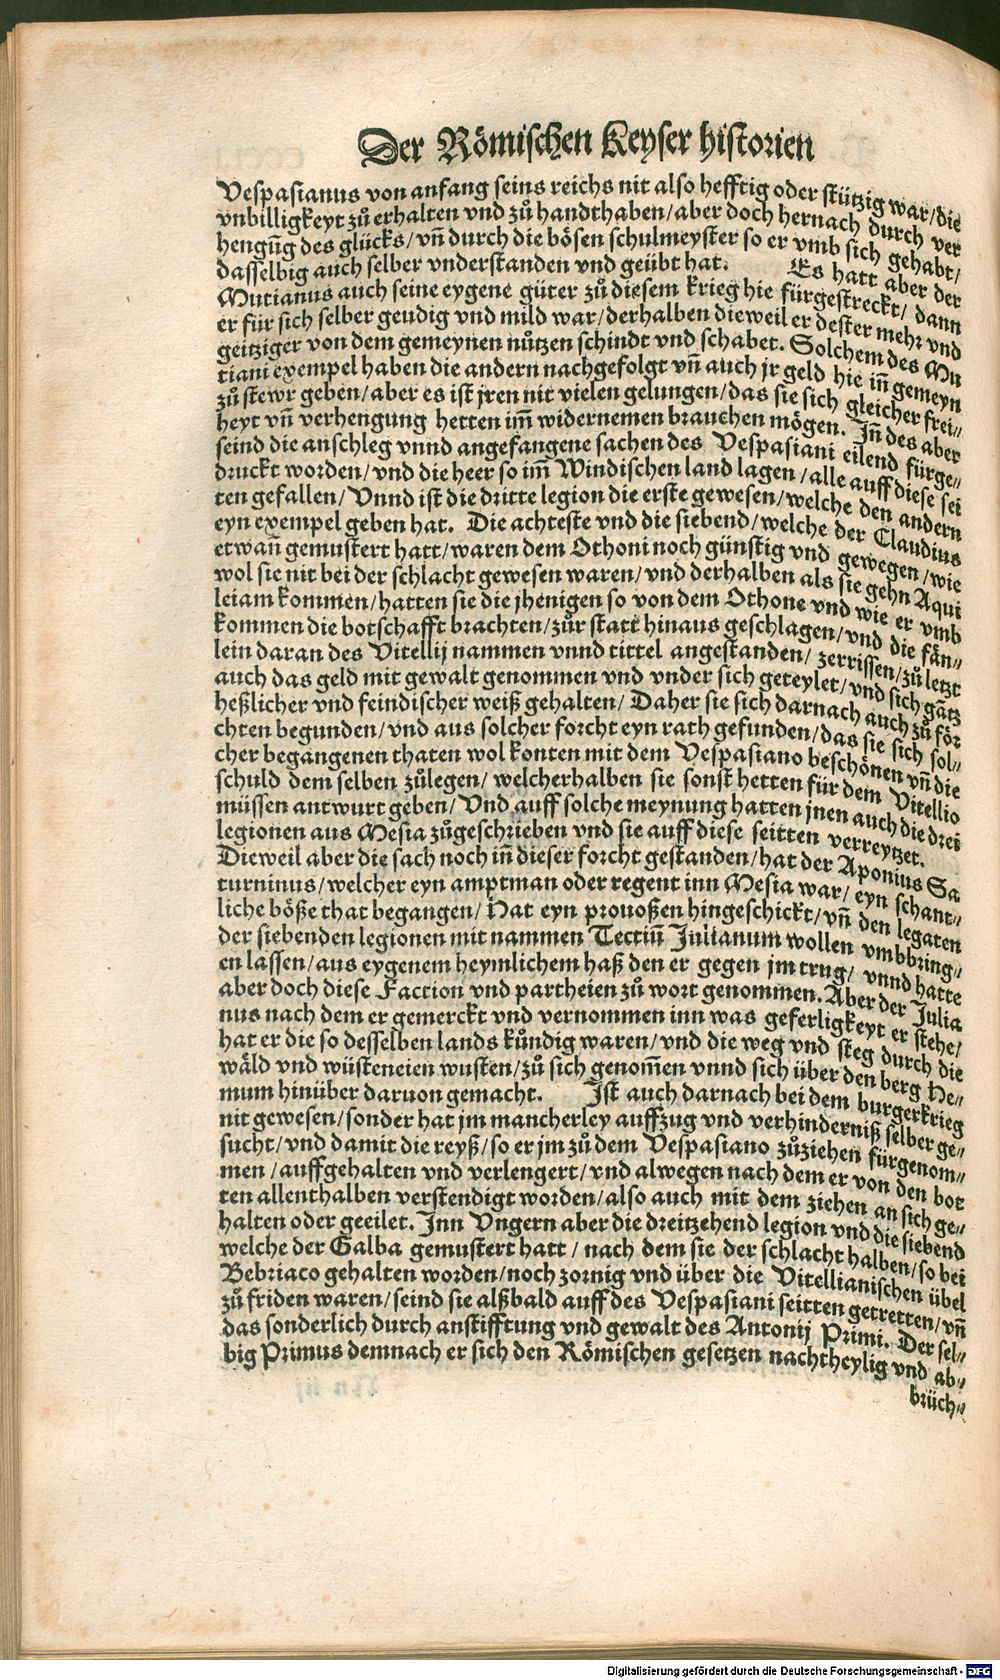 Der Römischen Keyser historien
Vespasianus von anfang seins reichs nit also hefftig oder stützig war/die
vnbilligkeyt zů erhalten vnd zů handthaben/aber doch hernach durch ver
hengũg des glücks/vñ durch die bösen schulmeyster so er vmb sich gehabt/
dasselbig auch selber vnderstanden vnd geübt hat. Es hatt aber der
Mutianus auch seine eygene güter zů diesem krieg hie fürgestreckt/ dann
er für sich selber geudig vnd mild war/derhalben dieweil er dester mehr vnd
geitziger von dem gemeynen nůtzen schindt vnd schabet. Solchem des Mu
tiani exempel haben die andern nachgefolgt vñ auch jr geld hie iñ gemeyn
zů stewr geben/aber es ist jren nit vielen gelungen/das sie sich gleicher frei⸗
heyt vñ verhengung hetten im̃ widernemen brauchen mögen. Iñ des aber
seind die anschleg vnnd angefangene sachen des Vespasiani eilend fürge⸗
druckt worden/vnd die heer so im̃ Windischen land lagen/alle auff diese sei
ten gefallen/ Vnnd ist die dritte legion die erste gewesen/welche den andern
eyn exempel geben hat. Die achteste vnd die siebend/welche der Claudius
etwañ gemustert hatt/waren dem Othoni noch günstig vnd gewegen/wie
wol sie nit bei der schlacht gewesen waren/vnd derhalben als sie gehn Aqui
leiam kommen/hatten sie die jhenigen so von dem Othone vnd wie er vmb
kommen die botschafft brachten/zůr statt hinaus geschlagen/vnd die fän⸗
lein daran des Vitellij nammen vnnd tittel angestanden/ zerrissen/zů letzt
auch das geld mit gewalt genommen vnd vnder sich geteylet/vnd sich gãtz
heßlicher vnd feindischer weiß gehalten/ Daher sie sich darnach auch zů för
chten begunden/vnd aus solcher forcht eyn rath gefunden/das sie sich sol⸗
cher begangenen thaten wol konten mit dem Vespasiano beschönen vñ die
schuld dem selben zůlegen/ welcherhalben sie sonst hetten für dem Vitellio
müssen antwurt geben/ Vnd auff solche meynung hatten jnen auch die drei
legionen aus Mesia zůgeschrieben vnd sie auff diese seitten verreytzet.
Dieweil aber die sach noch iñ dieser forcht gestanden/hat der Aponius Sa
turninus/welcher eyn amptman oder regent inn Mesia war/ eyn schant⸗
liche böße that begangen/ Hat eyn prouoßen hingeschickt/vñ den legaten
der siebenden legionen mit nammen Tectiũ Julianum wollen vmbbring⸗
en lassen/aus eygenem heymlichem haß den er gegen jm trug/ vnnd hatte
aber doch diese Faction vnd partheien zů wort genommen. Aber der Julia
nus nach dem er gemerckt vnd vernommen inn was geferligkeyt er stehe/
hat er die so desselben lands kůndig waren/vnd die weg vnd steg durch die
wäld vnd wüsteneien wusten/zů sich genom̃en vnnd sich über den berg He⸗
mum hinüber daruon gemacht. Ist auch darnach bei dem burgerkrieg
nit gewesen/sonder hat jm mancherley auffzug vnd verhinderniß selber ge⸗
sucht/vnd damit die reyß/so er jm zů dem Vespasiano zůziehen fürgenom⸗
men/auffgehalten vnd verlengert/vnd alwegen nach dem er von den bot
ten allenthalben verstendigt worden/also auch mit dem ziehen an sich ge⸗
halten oder geeilet. Inn Vngern aber die dreitzehend legion vnd die siebend
welche der Galba gemustert hatt/ nach dem sie der schlacht halben/so bei
Bebriaco gehalten worden/noch zornig vnd über die Vitellianischen übel
zů friden waren/seind sie alßbald auff des Vespasiani seitten getretten/vñ
das sonderlich durch anstifftung vnd gewalt des Antonij Primi. Der sel⸗
big Primus demnach er sich den Römischen gesetzen nachtheylig vnd ab⸗
brüch⸗
Digitalisierung gefördert durch die Deutsche Forschungsgemeinschaft - DFG